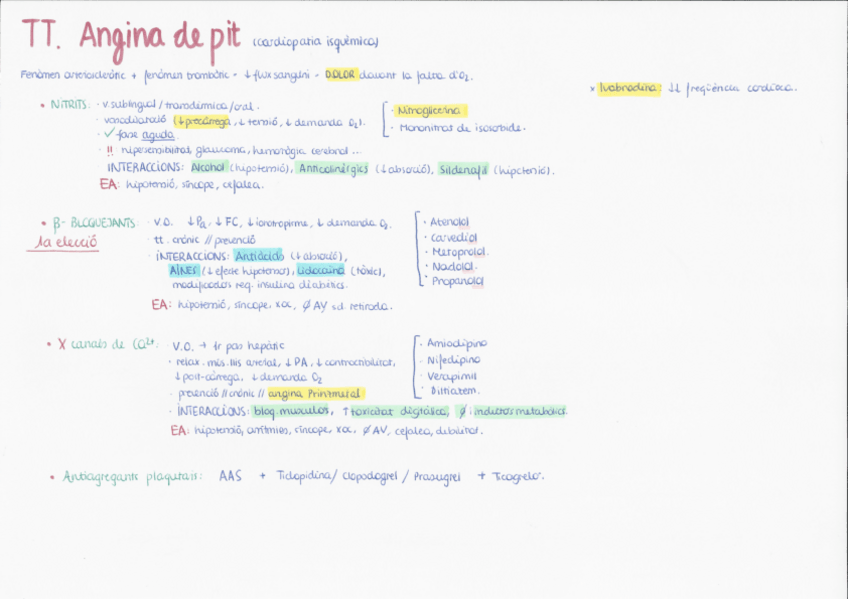 TT. Angina de pit (cardiopatia isquèmica)
Fenomen arterioscleròtic + fenomen trombòtic = ↓ flux sanguini - DOLOR davant la falta d'O2.
* Ivabradina: ↓↓ freqüència cardíaca.
• NITRITS: · v. sublingual / transdèrmica / oral.
· vasodilatació (↓ precàrrega, ↓ tensió, ↓ demanda O2).
· ✓ fase aguda.
· !! hipersensibilitat, glaucoma, hemorràgia cerebral ...
INTERACCIONS: Alcohol (hipotensió), Anticolinèrgics (↓ absorció), Sildenafil (hipotensió).
EA: hipotensió, síncope, cefalea.
· Nitroglicerina
· Mononitrat de isosorbide.
• β- BLOQUEJANTS: · V.O. ↓ Pa, ↓ FC, ↓ ionotropisme, ↓ demanda O2.
1a elecció
· tt. crònic // prevenció
· INTERACCIONS: Antiàcids (↓ absorció),
AINES (↓ efecte hipotensor), Lidocaïna (tòxic),
modificador req. insulina diabètics.
EA: hipotensió, síncope, xoc, ∅ AV sd. retirada.
· Atenolol
· Carvediol
· Metoprolol.
· Nadolol.
· Propanolol
• X canals de Ca2+: · V.O. → 1r pas hepàtic
· relax. mús. llis arterial, ↓ PA, ↓ contractibilitat,
↓ post-càrrega, ↓ demanda O2
· prevenció // crònic // angina Prinzmetal
· INTERACCIONS: bloq. musculos, ↑ toxicitat digitàlica, ∅: inductors metabòlics.
EA: hipotensió, arrítmies, síncope, xoc, ∅ AV, cefalea, debilitat.
· Amlodipino
· Nifedipino
· Verapimil
· Diltiazem.
• Antiagregants plaquetaris: AAS + Ticlopidina / Clopodogrel / Prasugrel + Ticagrelor.